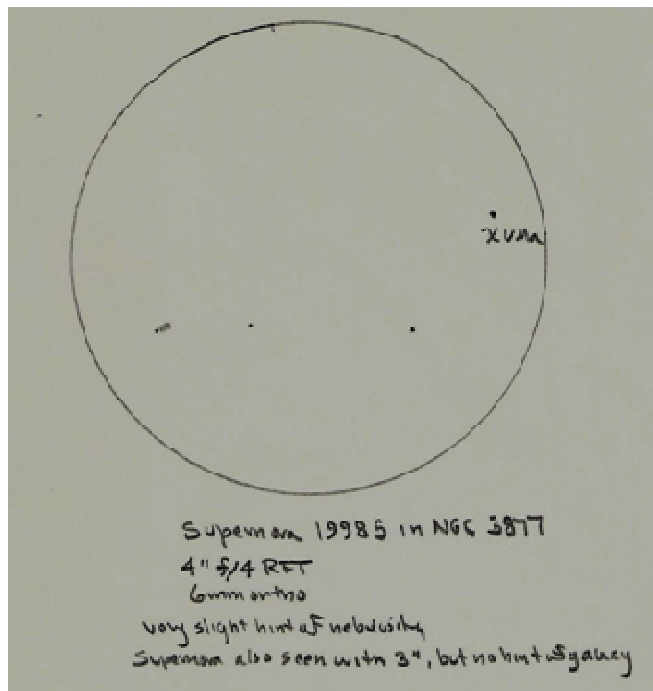 χ UMa
Supernova 1998S in NGC 3877
4" f/4 RFT
6mm ortho
very slight hint of nebulosity
Supernova also seen with 3", but no hint of galaxy